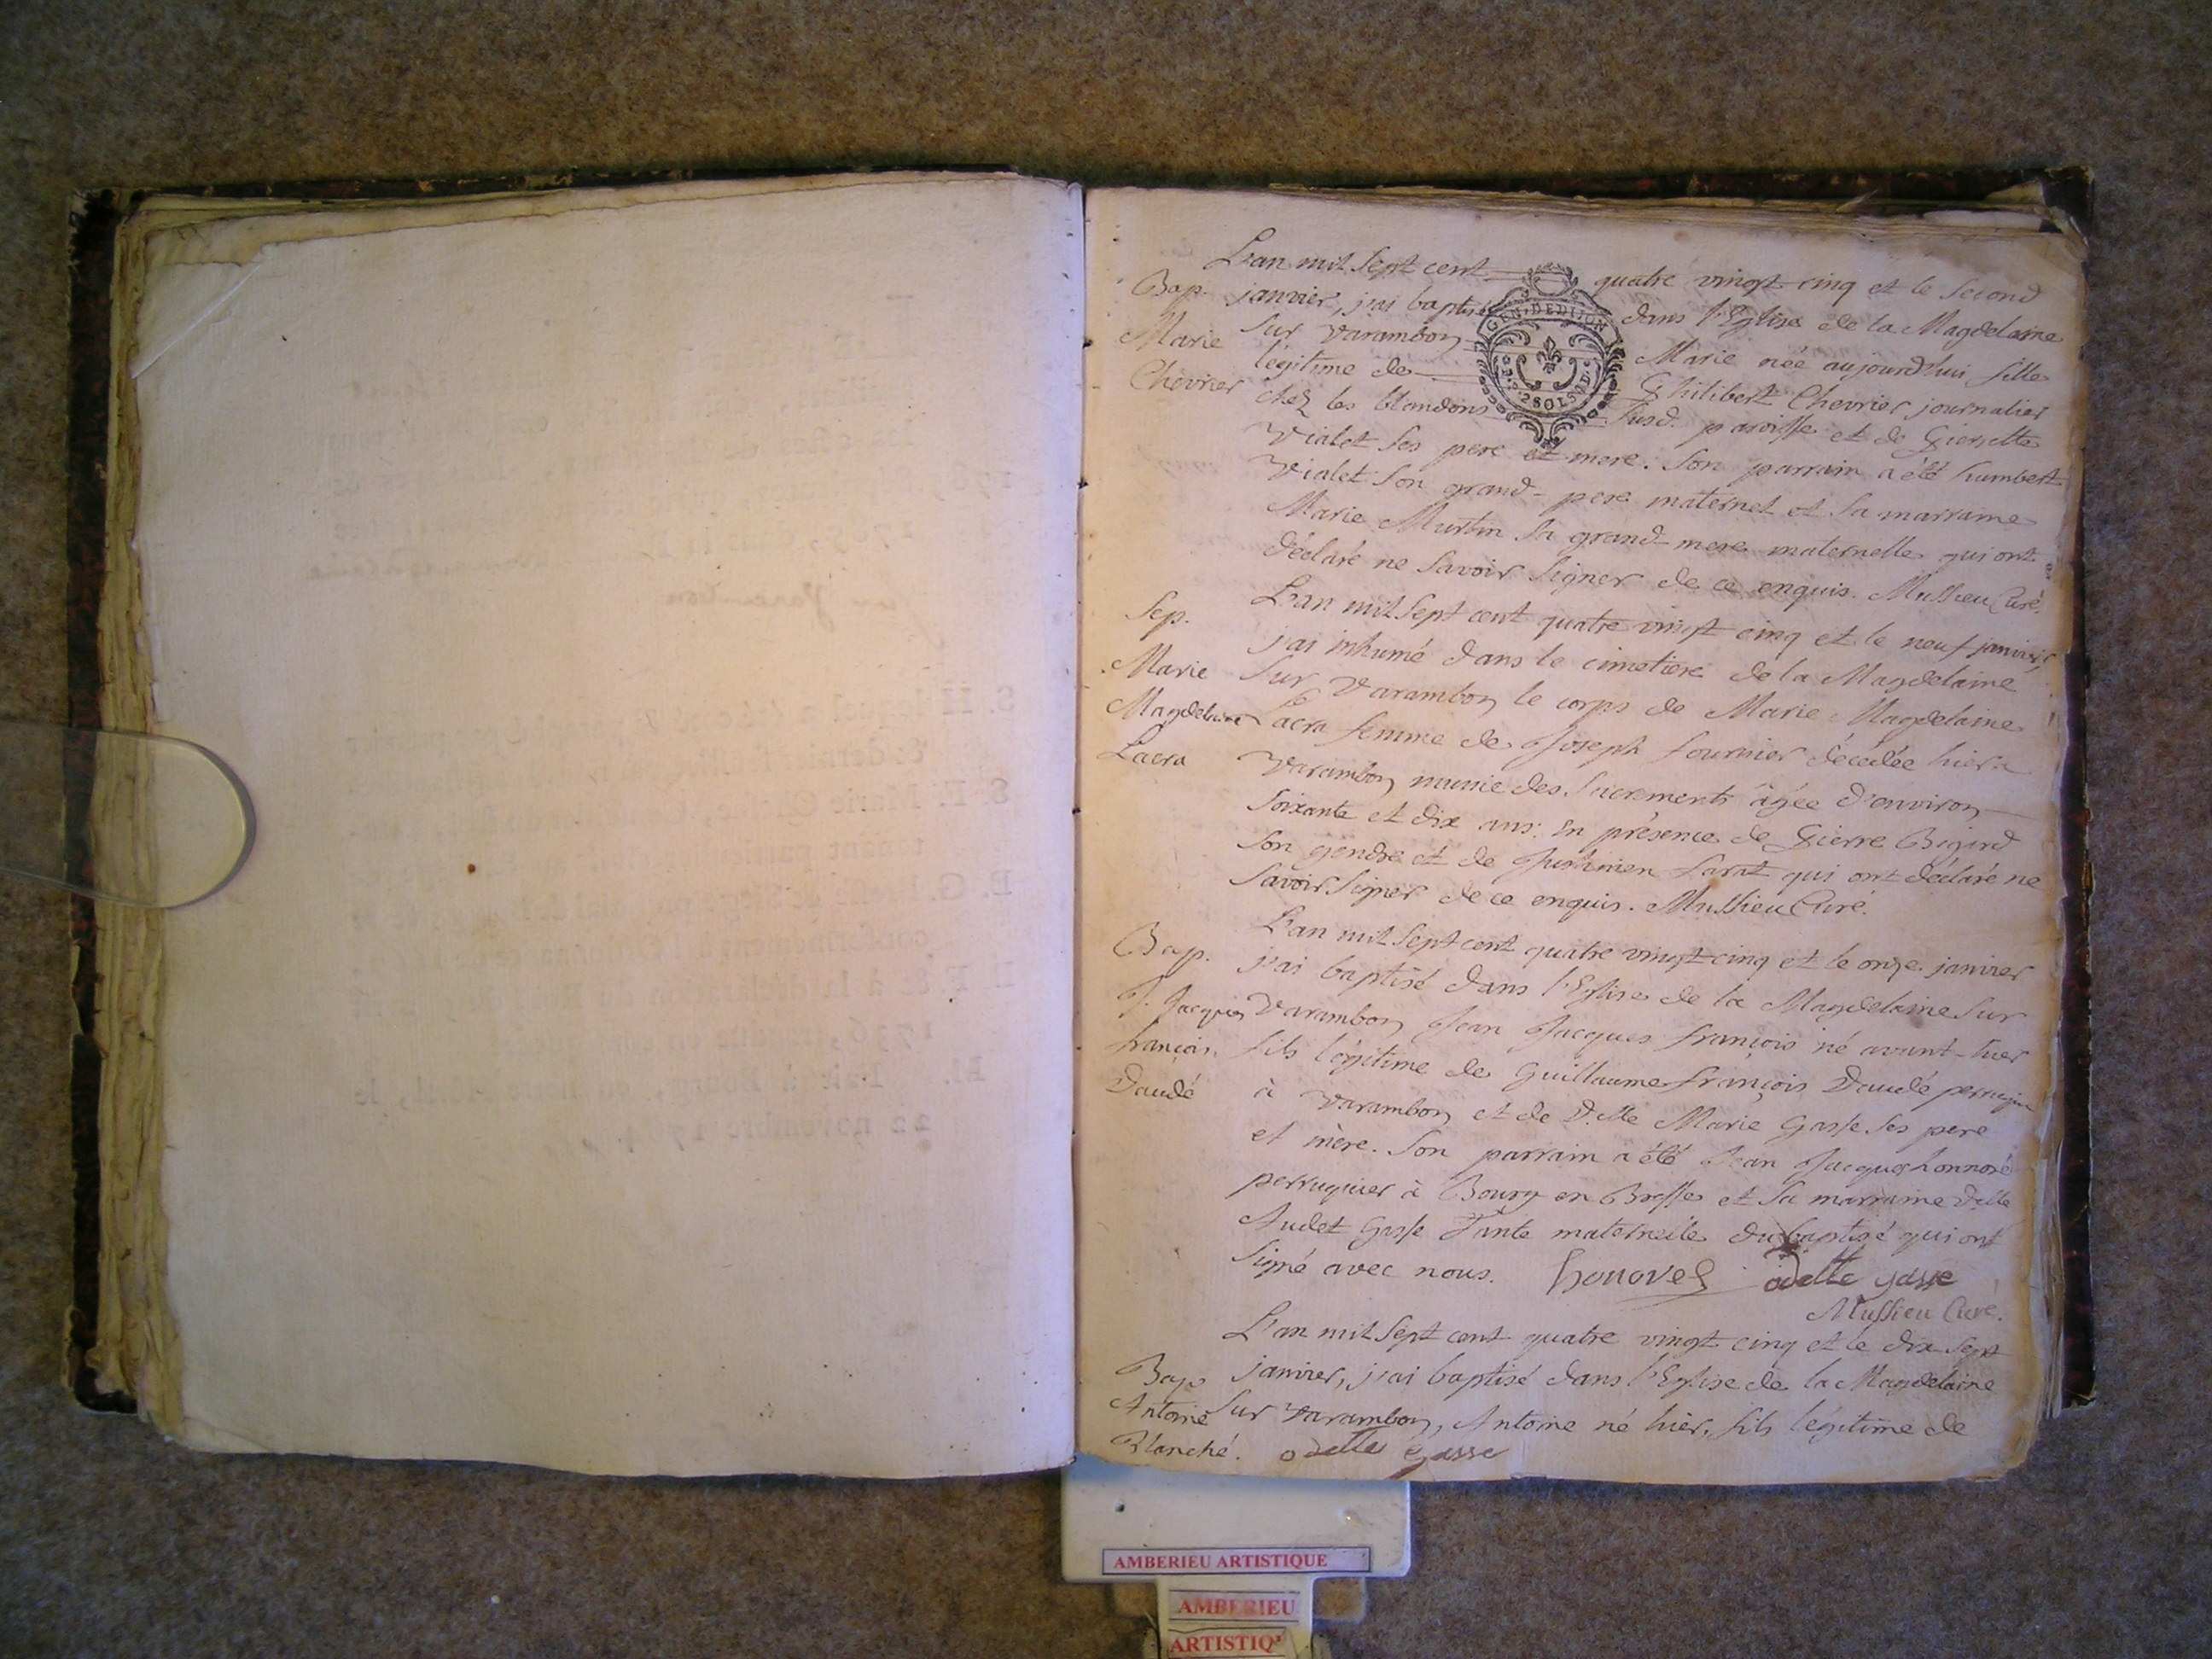 L'an mil sept cent quatre vingt cinq et le second
Bap. janvier, j'ai baptisé dans l'Eglise de la Magdelaine
Marie sur Varambon Marie née aujourd'hui fille
Chevrier légitime de Philibert Chevrier journalier
chez les blandons susd. paroisse et de Pierrette
Vialet ses pere et mere. Son parrain a été humbert
Vialet son grand-pere maternel et sa marraine
Marie Murtin sa grand-mere maternelle qui ont
déclaré ne savoir signer de ce enquis. Mussieu Curé.
GEN. DE DIJON
2 SOLS 8 D.
Sep. L'an mil sept cent quatre vingt cinq et le neuf janvier
j'ai inhumé dans le cimetiere de la Magdelaine
Marie sur Varambon le corps de Marie Magdelaine
Magdelaine Lacra femme de Joseph fournier décédée hier a
Lacra Varambon munie des Sacrements âgée d'environ
soixante et dix ans. en présence de Pierre
son gendre et de farat qui ont déclaré ne
savoir signer de ce enquis. Mussieu Curé.
L'an mil sept cent quatre vingt cinq et le onze janvier
Bap. j'ai baptisé dans l'Eglise de la Magdelaine sur
J. Jacques Varambon Jean Jacques françois né avant-hier
françois fils légitime de Guillaume françois Daudé perruquier
Daudé à Varambon et de D.lle Marie Gasse ses pere
et mère. Son parrain a été Jean Jacques honnoré
perruquier à Bourg en Bresse et sa marraine D.lle
Audet Gasse Tante maternelle du baptisé qui ont
signé avec nous. odette gasse
Mussieu Curé.
L'an mil sept cent quatre vingt cinq et le dix sept
Bap janvier, j'ai baptisé dans l'Eglise de la Magdelaine
Antoine sur Varambon, Antoine né hier, fils légitime de
Blanché. odette gasse
AMBERIEU ARTISTIQUE
AMBERIEU
ARTISTIQ